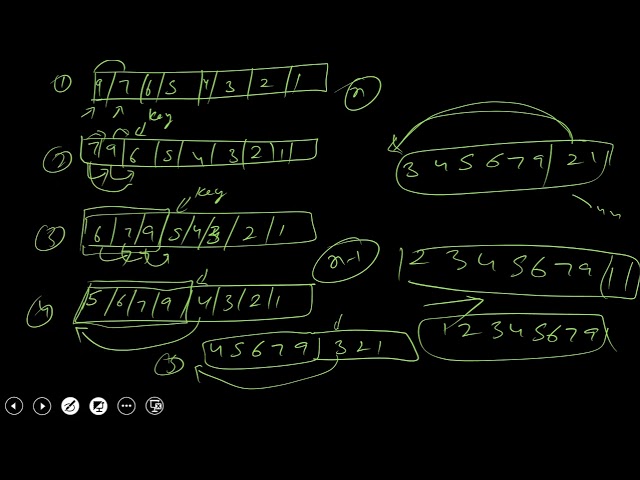 ① 9 7 6 5 4 3 2 1
key
② 7 9 6 5 4 3 2 1
key
③ 6 7 9 5 4 3 2 1
④ 5 6 7 9 4 3 2 1
⑤ 4 5 6 7 9 3 2 1
n
3 4 5 6 7 9 2 1
n-1
2 3 4 5 6 7 9 1
1 2 3 4 5 6 7 9